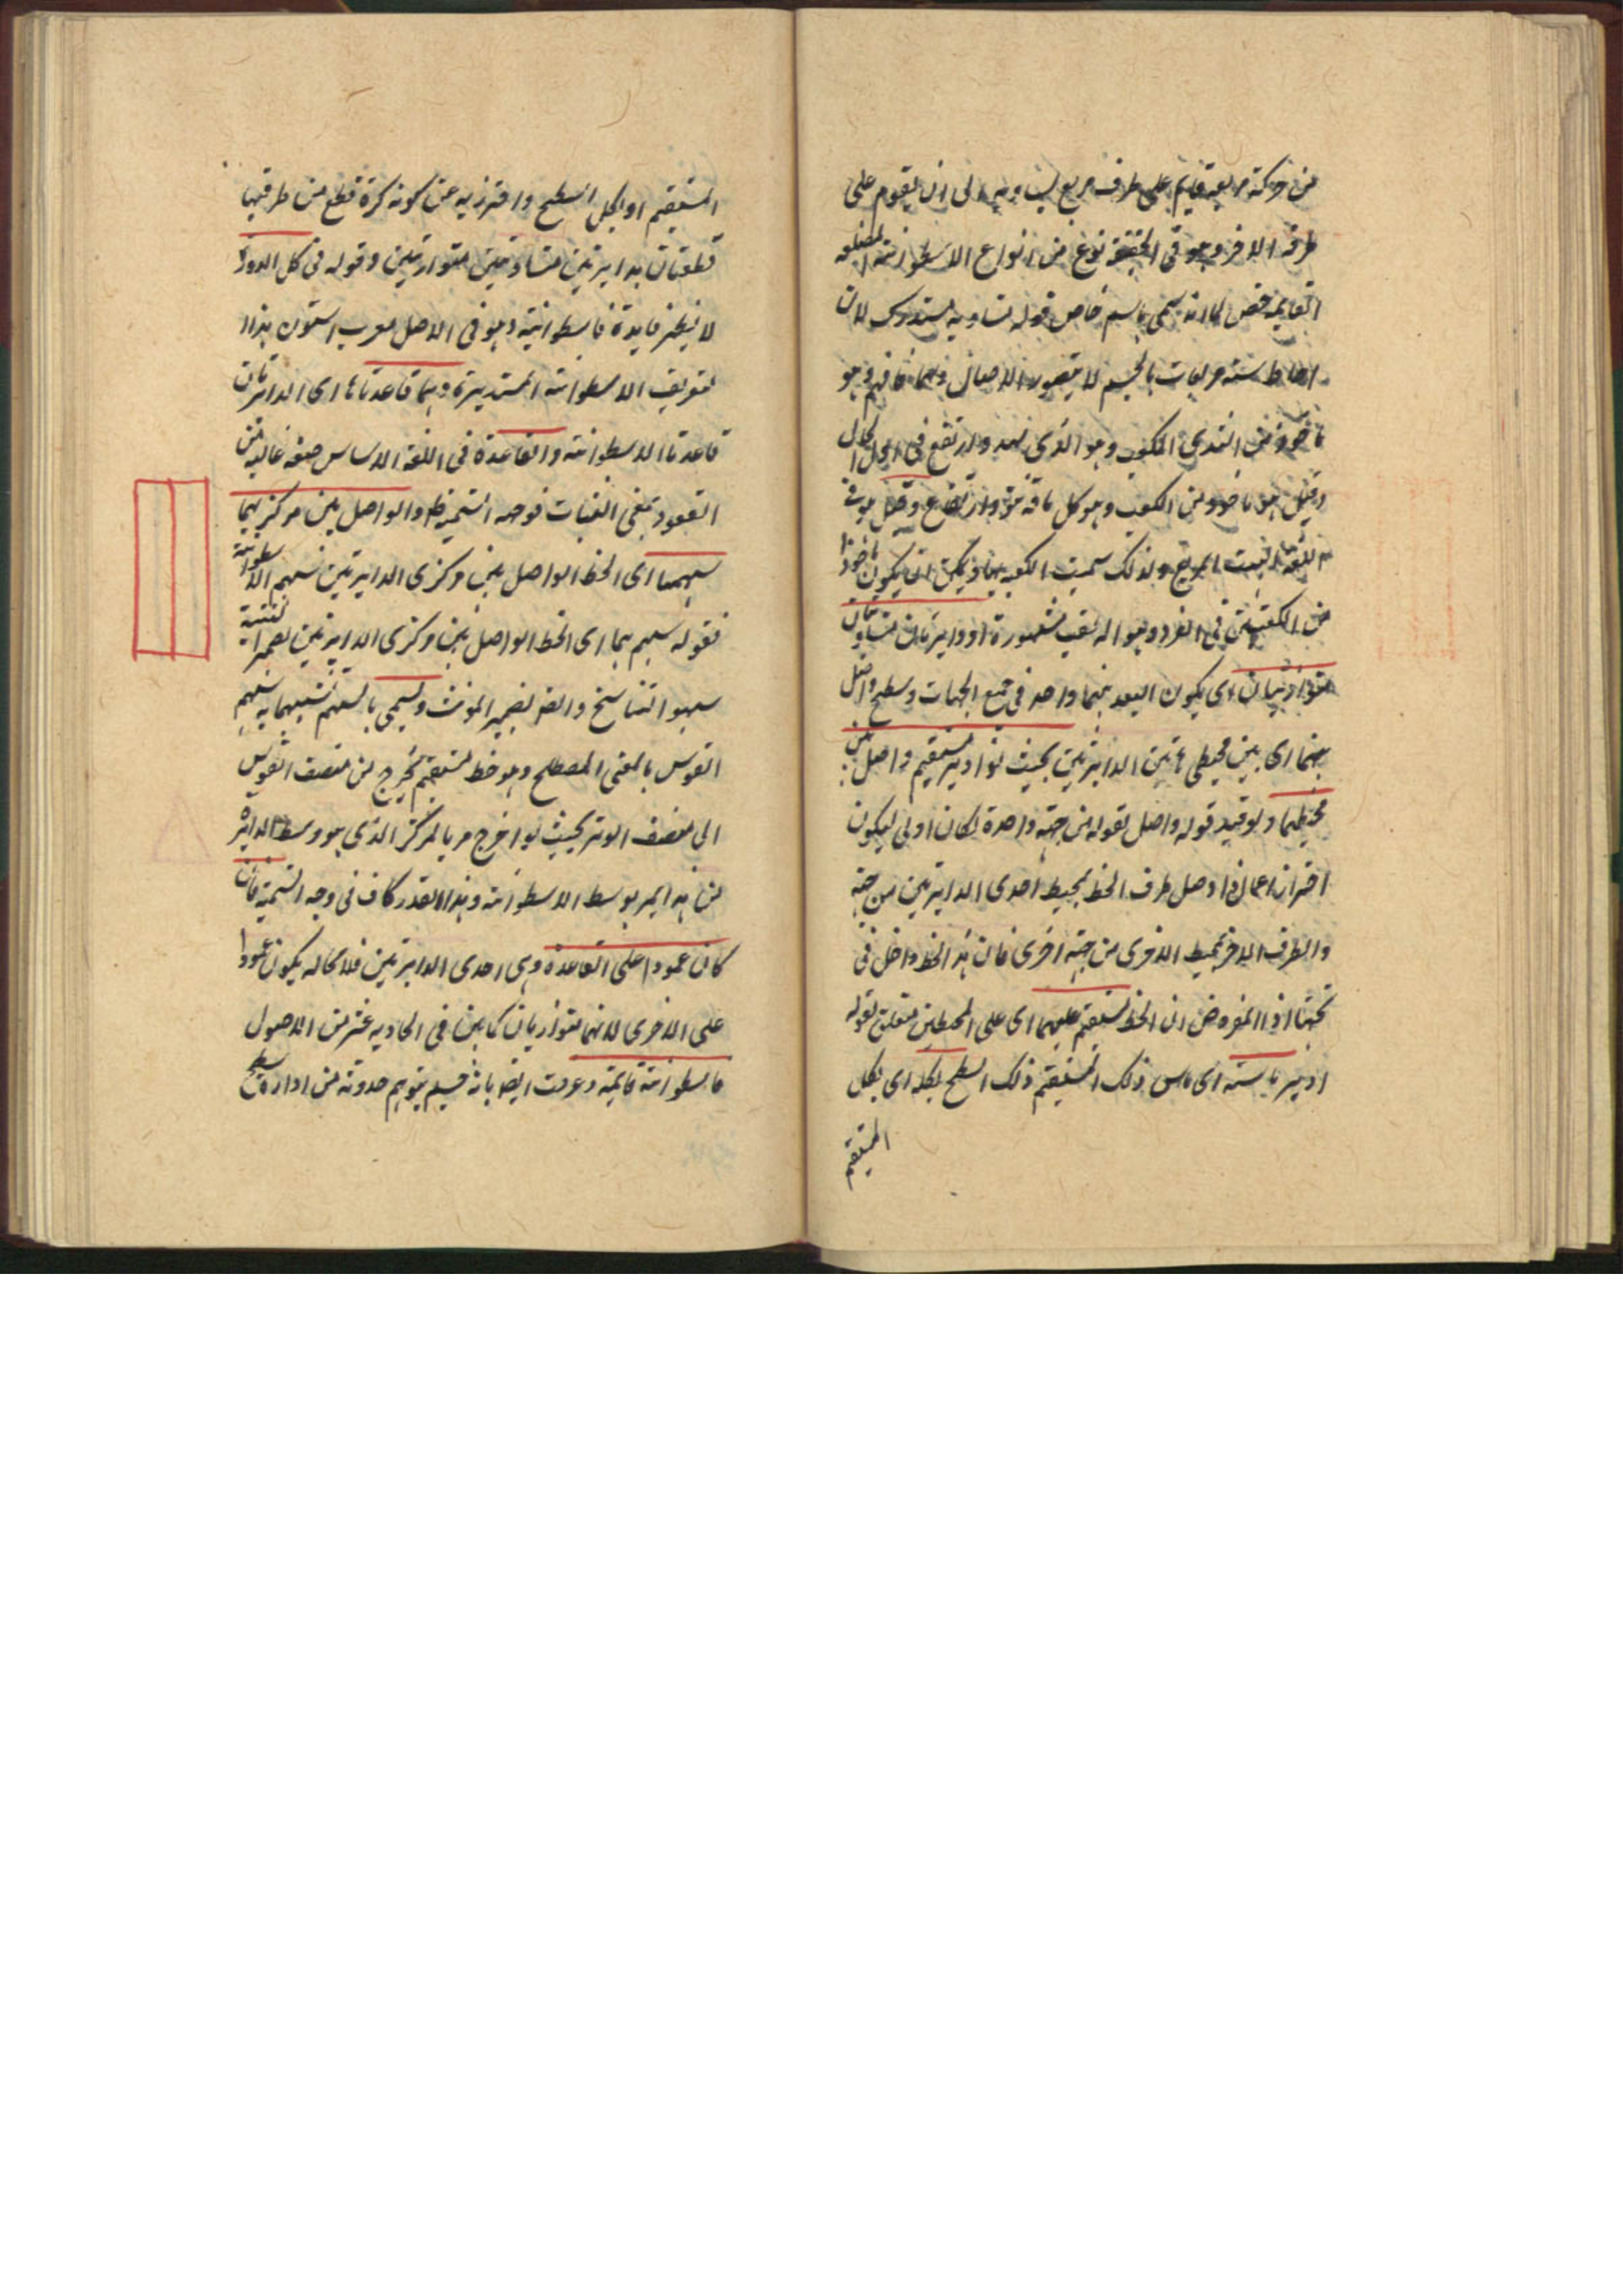 من حركة مربعه قايم على طرف مربع يساويه الى ان يقوم على
طرفه الاخر وهو في الحقيقة نوع من انواع الاسطوانة المضلعه
القايمه خص لما انه سمى باسم خاص قوله متساويه مستدرك لان
احاطة ستة مربعات بالجسم لا يتصور الا وهو
ماخوذ من الثدي المكعب وهو الذي نهد وارتفع في
وقيل هو ماخوذ من الكعب وهو كل ما فيه نتو وارتفاع وقيل هو في
اللغة البيت المربع ولذلك سميت الكعبه بها ويمكن ان يكون ماخوذا
من الكعبتين في النرد وهو اله لعب مشهورة او دايرتان متساويتان
متوازيتان اى يكون البعد بينهما واحد في جميع الجهات وسطح واصل
بينهما اى بين محيطى هاتين الدايرتين بحيث لو ادير مستقيم واصل بين
محيطيهما ولو قيد قوله واصل بقوله من جهة واحدة لكان اولى ليكون
احترازا عما اذا وصل طرف الخط بمحيط احدى الدايرتين من جهة
والطرف الاخر بمحيط الاخرى من جهة اخرى فان هذا الخط داخل في
اذ المفروض ان الخط مستقيم عليهما اى على المحيطين متعلق بقوله
ادير ماسته اى ماس ذلك المستقيم ذلك السطح بكله اى بكل
المستقيم
المستقيم او بكل السطح واحترز به عن كونه كرة قطع من طرفيها
قطعتان بدايرتين متساويتين متوازيتين وقوله في كل الدورة
لا يخلو فايدة فاسطوانية وهو في الاصل معرب استون هذا
تعريف الاسطوانة المستديرة وهما قاعدتاها اى الدايرتان
قاعدتا الاسطوانة والقاعدة في اللغة الاساس صفه غالبه من
القعود بمعنى الثبات فوجه التسميه ظ والواصل بين مركزيهما
سهمها اى الخط الواصل بين مركزى الدايرتين سهم الاسطوانة
فقوله سهم بهما اى الخط الواصل بين مركزى الدايرتين بضمير التثنية
سهو الناسخ والصواب بضمير المونث ويسمى بالسهم تشبيها به بسهم
القوس بالمعنى المصطلح وهو خط مستقيم يخرج من منتصف القوس
الى منتصف الوتر بحيث لو اخرج مر بالمركز الذى هو وسط الدايرة
هذا يمر بوسط الاسطوانة وهذا القدر كاف في وجه التسمية فان
كان عمودا على القاعدة وهى احدى الدايرتين فلا محاله يكون عمودا
على الاخرى لانهما متوازيان كما بين في الحادية عشر من الاصول
فاسطوانة قايمة وعرفت ايضا بانه جسم يتوهم حدوثه من ادارة سطح